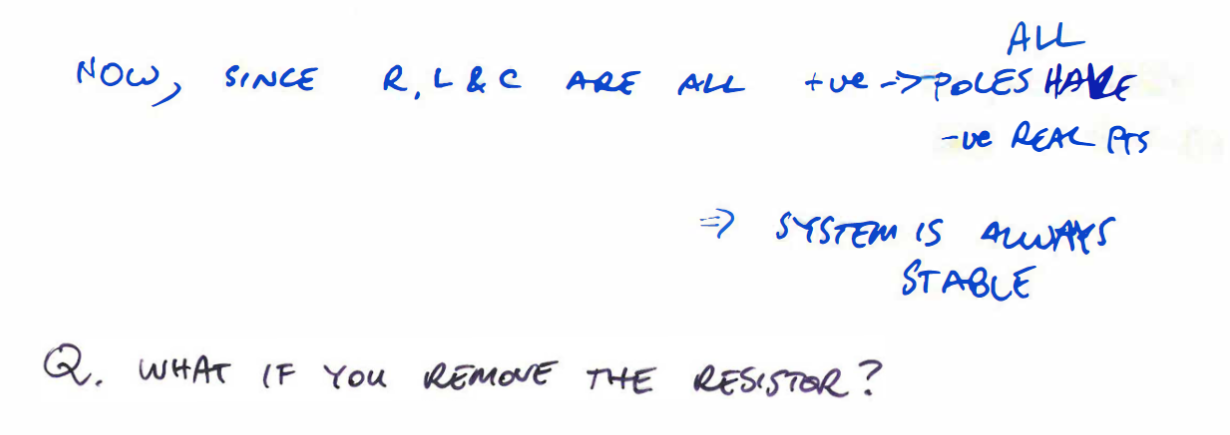 ALL
NOW, SINCE R, L & C ARE ALL +ve -> POLES HAVE
-ve REAL PTS
=> SYSTEM IS ALWAYS
STABLE
Q. WHAT IF YOU REMOVE THE RESISTOR?